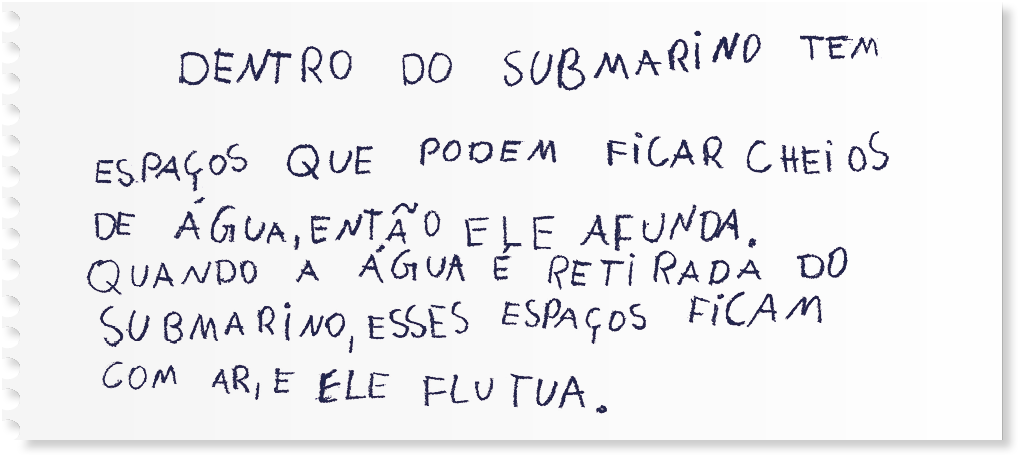 DENTRO DO SUBMARINO TEM
ESPAÇOS QUE PODEM FICAR CHEIOS
DE ÁGUA, ENTÃO ELE AFUNDA.
QUANDO A ÁGUA É RETIRADA DO
SUBMARINO, ESSES ESPAÇOS FICAM
COM AR, E ELE FLUTUA.